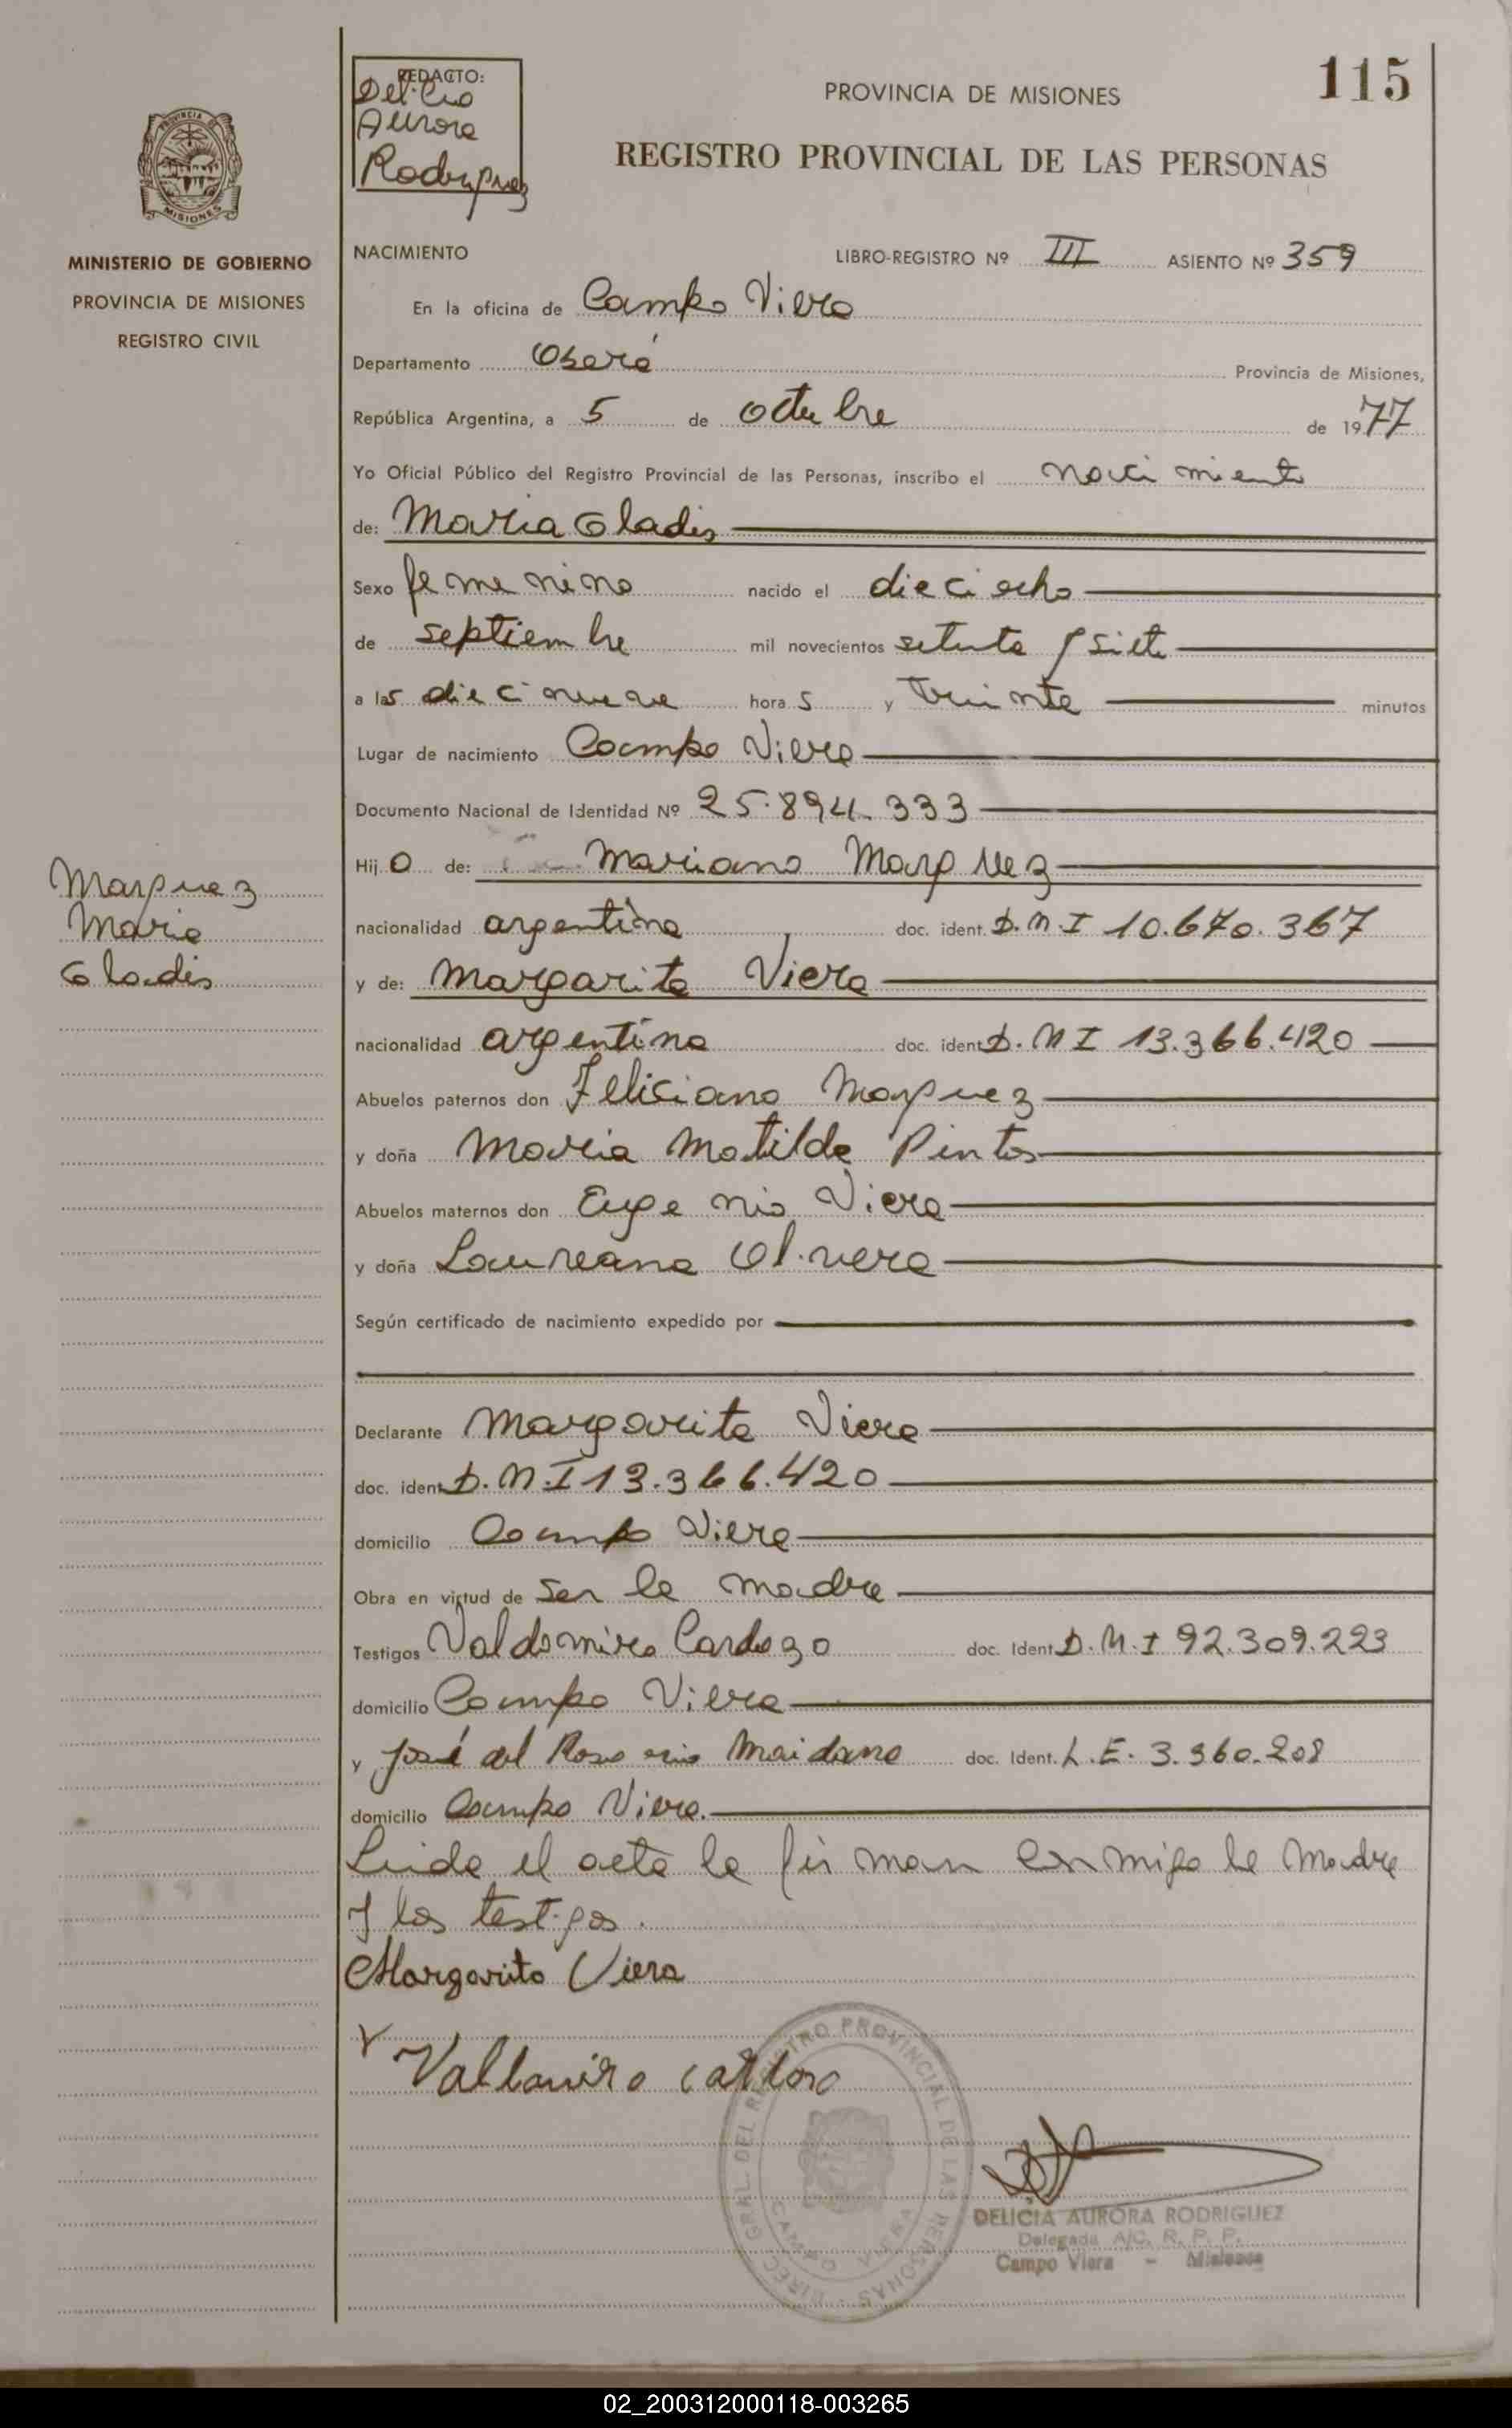 REDACTO:
Delicia
Aurora
Rodriguez
PROVINCIA DE MISIONES
115
REGISTRO PROVINCIAL DE LAS PERSONAS
PROVINCIA DE
MISIONES
MINISTERIO DE GOBIERNO
PROVINCIA DE MISIONES
REGISTRO CIVIL
NACIMIENTO LIBRO-REGISTRO Nº III ASIENTO Nº 359
En la oficina de Campo Viera
Departamento Oberá Provincia de Misiones,
República Argentina, a 5 de octubre de 1977
Yo Oficial Público del Registro Provincial de las Personas, inscribo el nacimiento
de: Maria Gladis
Sexo femenino nacido el dieciocho
de septiembre mil novecientos setenta y siete
a las diecinueve horas y treinta minutos
Lugar de nacimiento Campo Viera
Documento Nacional de Identidad Nº 25.894.333
Hijo de: Mariano Marquez
nacionalidad argentina doc. ident. D.N.I 10.670.367
y de: Margarita Viera
nacionalidad argentina doc. ident. D.N I 13.366.420
Abuelos paternos don Feliciano Marquez
y doña Maria Matilde Pintos
Abuelos maternos don Eugenio Viera
y doña Laureana Olivera
Según certificado de nacimiento expedido por
Marquez
Maria
Gladis
Declarante Margarita Viera
doc. ident. D.N.I 13.366.420
domicilio Campo Viera
Obra en virtud de ser la madre
Testigos Valdomiro Cardozo doc. Ident. D.N.I 92.309.223
domicilio Campo Viera
y José del Rosario Maidana doc. Ident. L.E. 3.360.208
domicilio Campo Viera.
Leida el acta la firman conmigo la madre
y los testigos.
Margarita Viera
Valdomiro Cardoso
DIREC. GRAL. DEL REGISTRO PROVINCIAL DE LAS PERSONAS
CAMPO VIERA
DELICIA AURORA RODRIGUEZ
Delegada A/C. R. P. P.
Campo Viera - Misiones
02_200312000118-003265